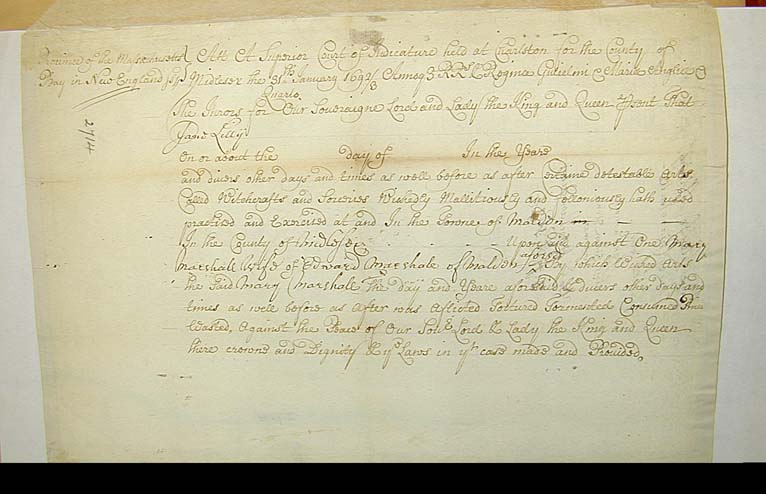 Province of the Massachusetts Att A Superior Court of Judicature held at Charlston for the County of
Bay in New England Midlesex the 31th January 1692/3 Annoq RRs & Regina Gulielmi & Mariæ Angliæ &
Quarto
The Jurors for Our Soveraigne Lord and Lady the King and Queen p'sent That
Jane Lilly
On or about the day of In the Yeare
and divers other days and times as well before as after Certaine detestable Arts
Called Witchcrafts and Sorceries Wickedly Mallitiously and felloniously hath used
practised and Exercised at and In the Towne of Maldon in
In the County of Midlesex Upon and against One Mary
Marshall Wife of Edward Marshale of Maldon aforesd By which Wicked Arts
the said Mary Marshale the day and Yeare aforesaid & divers other days and
times as well before as After was Aflicted Tortured Tormented Consumed Pined
Wasted, Against the Peace of Our Lord & Lady the King and Queen
there crowne and Dignity & ye Laws in yt case made and Provided,
2714